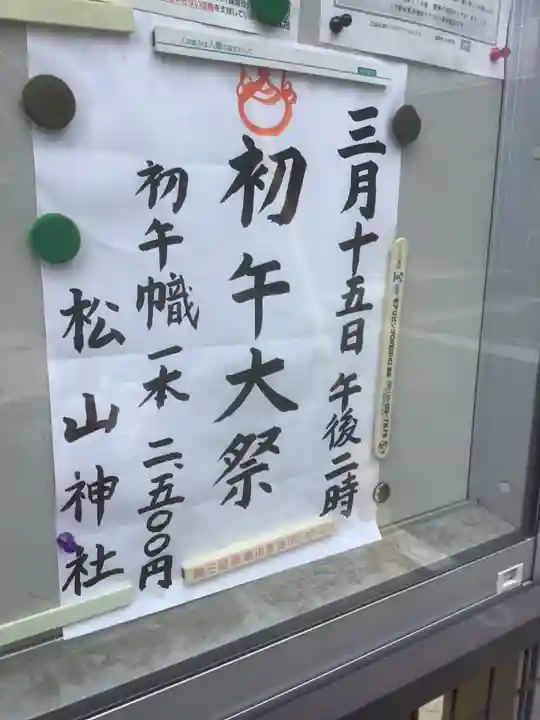 三月十五日 午後二時
初午大祭
初午幟 一本 二、五〇〇円
松山神社